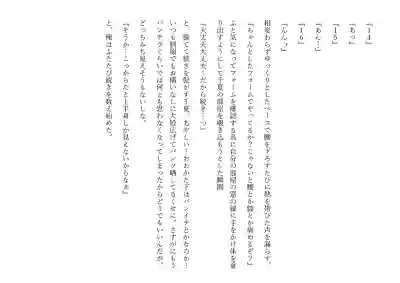 『１４』
『あっ』
『１５』
『あん…』
『１６』
『んんッ』
相変わらずゆっくりとしたペースで腰を下ろすたびに熱を帯びた声を漏らす。
『ちゃんとしたフォームでやってるか？じゃないと腰とか膝とか痛めるぞ？』
ふと気になってフォームを確認する為に自分の部屋の窓の縁に手をかけ体を乗
り出すようにして千夏の部屋を覗き込もうとした瞬間
『大丈夫大丈夫！だから続き…っ』
と、慌てて続きを促がす千夏。あやしい…おおかた下はパンイチとかなのか…
いつも制服でもお構いなしに大股広げてパンツ晒してるくせに。さすがにもう
パンチラぐらいでは何とも思わなくなってしまったからどうでもいいんだが。
どっちみち見えそうもないしな。
『そうか…こっからだと上半身しか見えないからなぁ』
と、俺はふたたび続きを数え始めた。